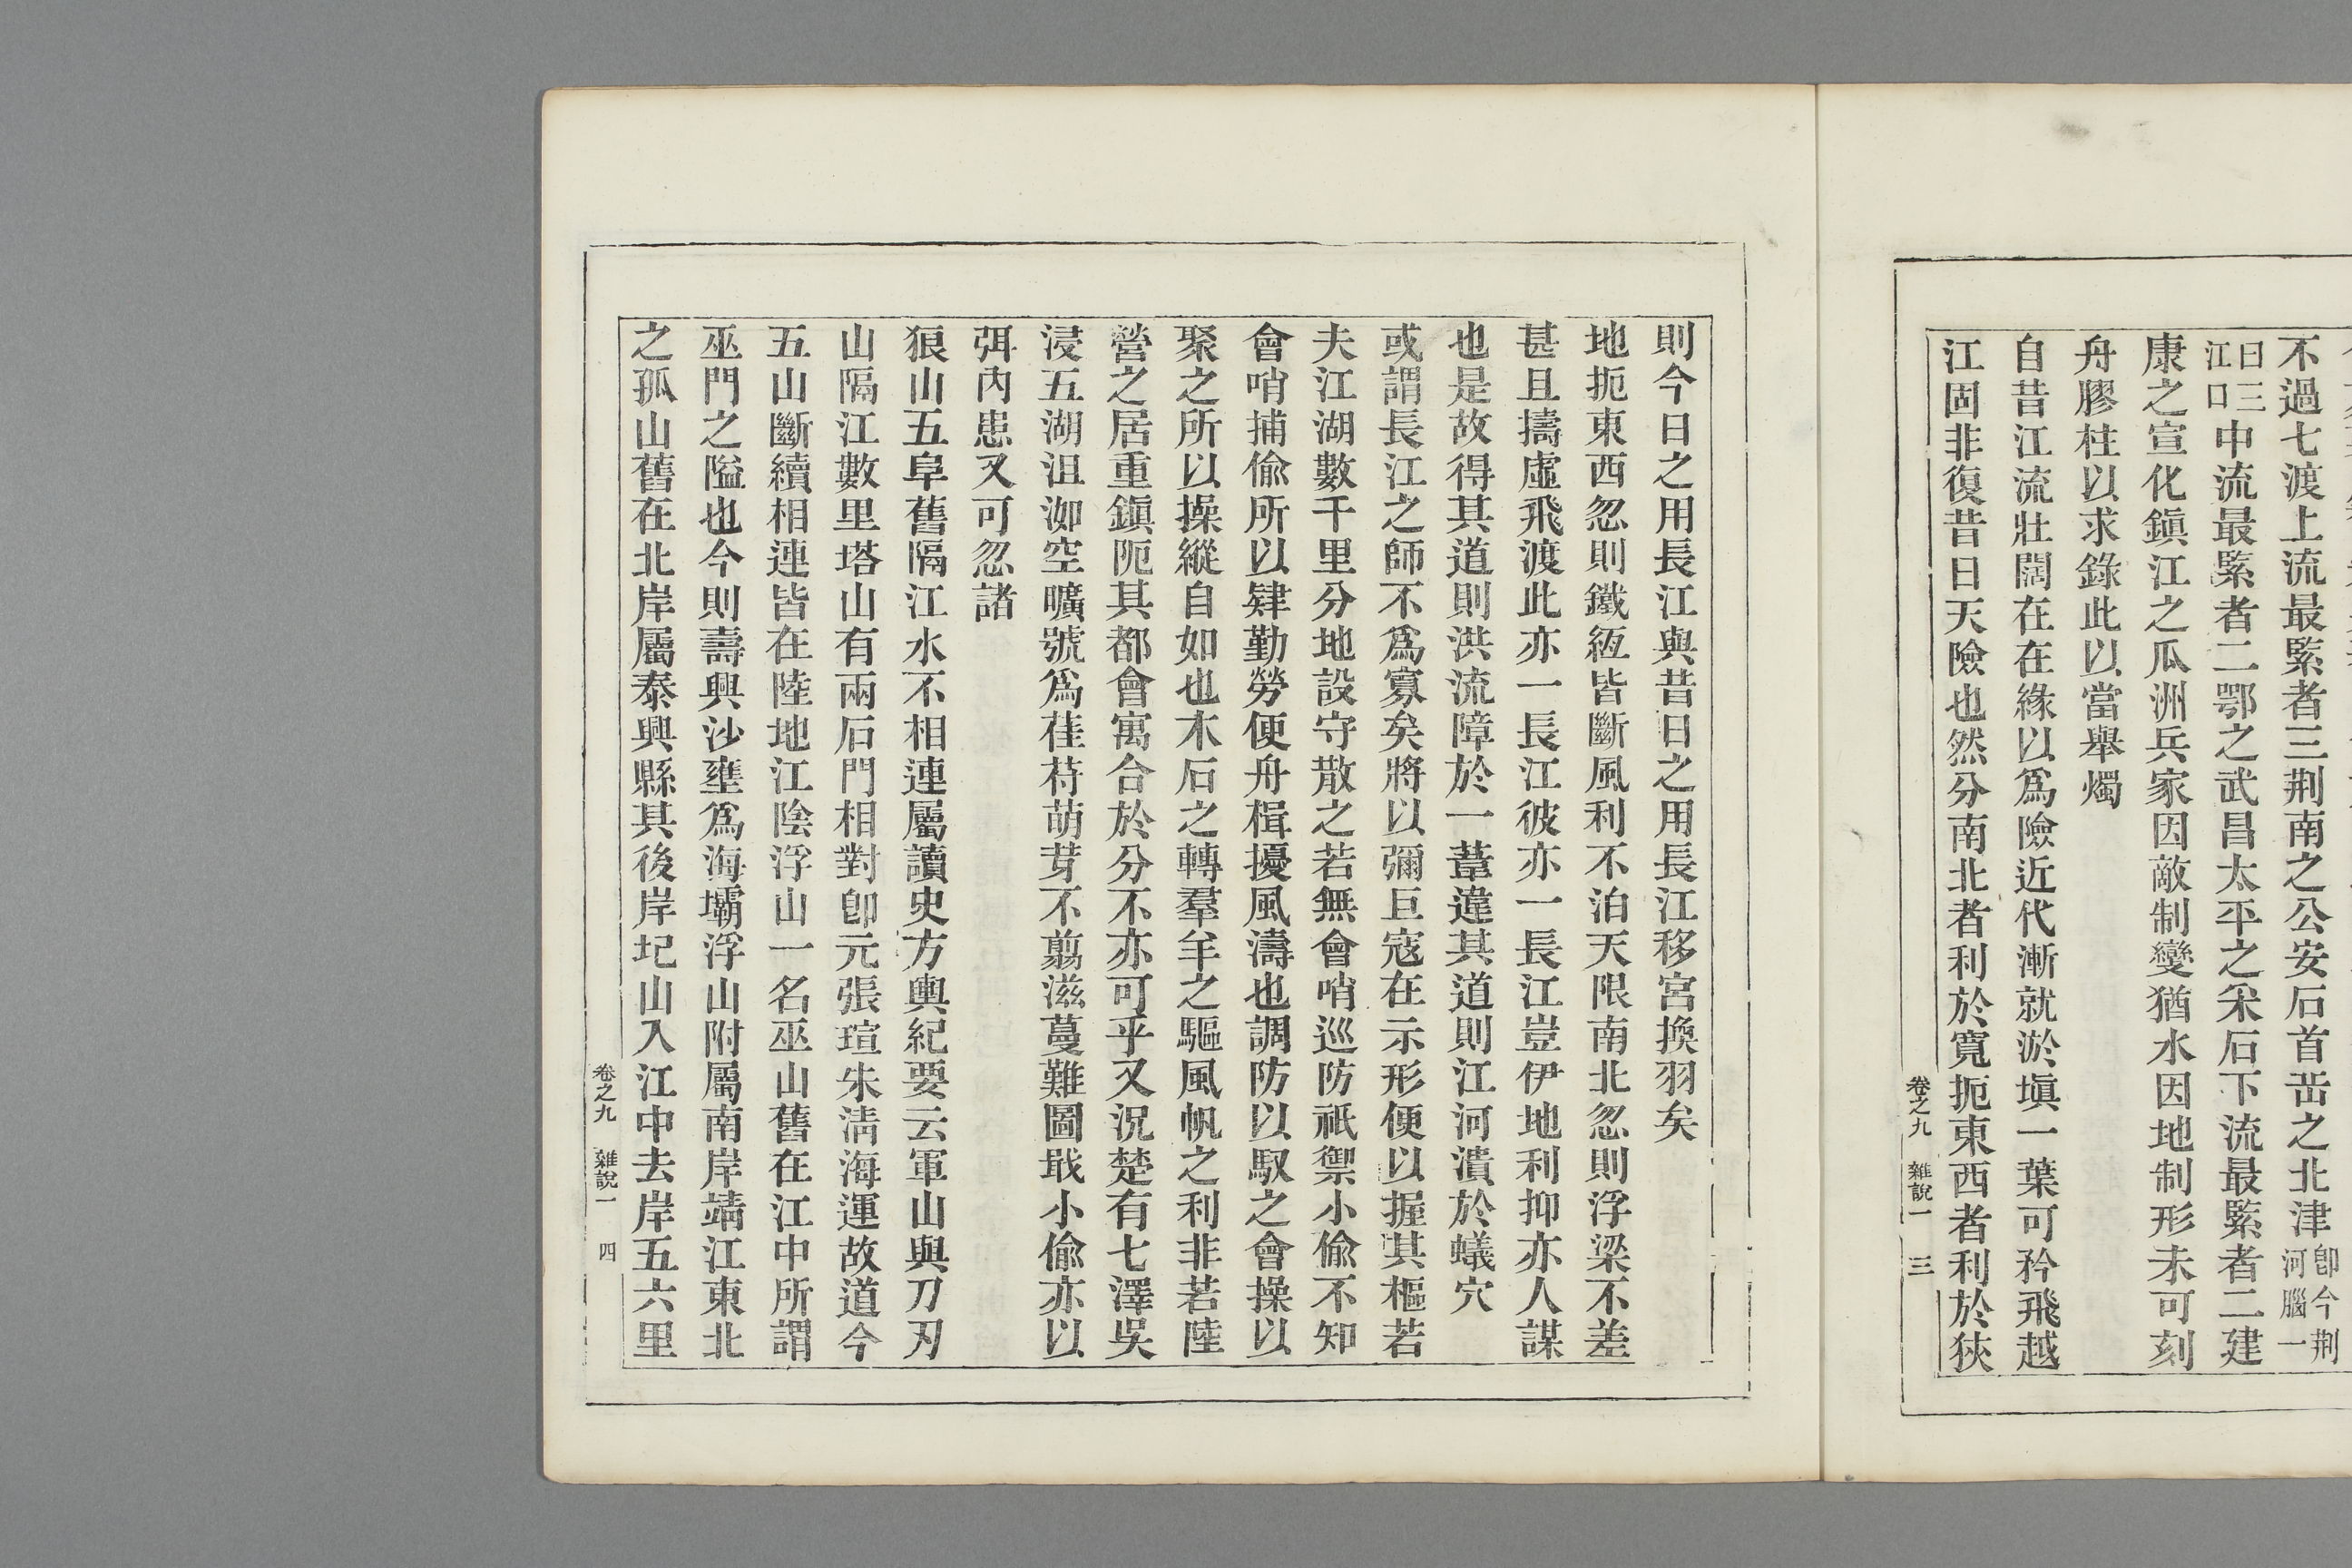 不過七渡上流最緊者三荆南之公安石首岊之北津卽今荆河腦一
曰三江口中流最緊者二鄂之武昌太平之采石下流最緊者二建
康之宣化鎭江之瓜洲兵家因敵制變猶水因地制形未可刻
舟膠柱以求錄此以當舉燭
自昔江流壯闊在在緣以爲險近代漸就淤塡一葉可矜飛越
江固非復昔日天險也然分南北者利於寬扼東西者利於狹
卷之九 雜說一 三
則今日之用長江與昔日之用長江移宮換羽矣
地扼東西忽則鐵絚皆斷風利不泊天限南北忽則浮梁不差
甚且擣虛飛渡此亦一長江彼亦一長江豈伊地利抑亦人謀
也是故得其道則洪流障於一葦違其道則江河潰於蟻穴
或謂長江之師不爲寡矣將以彌巨寇在示形便以握其樞若
夫江湖數千里分地設守散之若無會哨巡防祇禦小偷不知
會哨捕偷所以肄勤勞便舟楫擾風濤也調防以馭之會操以
聚之所以操縱自如也木石之轉羣羊之驅風帆之利非若陸
營之居重鎭阨其都會寓合於分不亦可乎又況楚有七澤吳
浸五湖沮洳空曠號爲萑苻萌芽不翦滋蔓難圖戢小偷亦以
弭內患又可忽諸
狼山五阜舊隔江水不相連屬讀史方輿紀要云軍山與刀刃
山隔江數里塔山有兩石門相對卽元張瑄朱淸海運故道今
五山斷續相連皆在陸地江陰浮山一名巫山舊在江中所謂
巫門之隘也今則壽興沙壅爲海壩浮山附屬南岸靖江東北
之孤山舊在北岸屬泰興縣其後岸圮山入江中去岸五六里
卷之九 雜說一 四